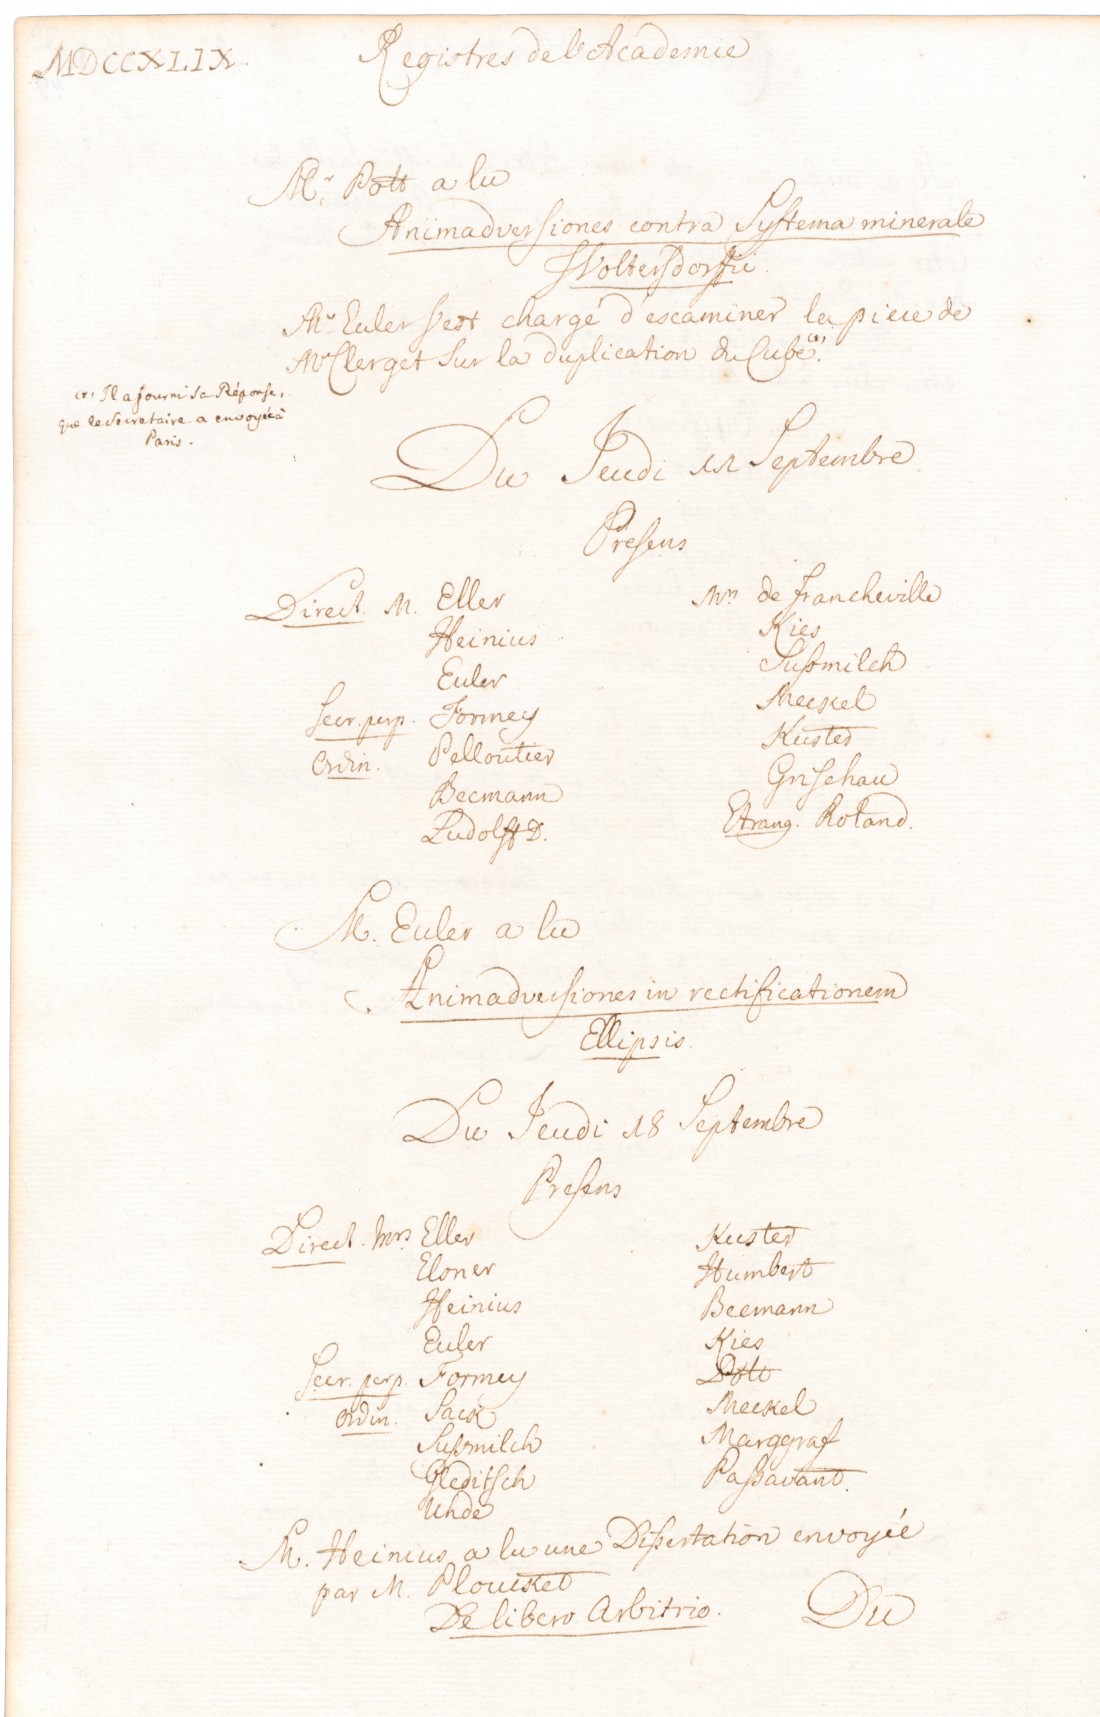 MDCCXLIX.
Registres de l'Academie
Mr. Pott a lu
Animadversiones contra Systema minerale
Woltersdorfii.
Mr. Euler s'est chargé d'examiner la piece de
Mr Clerget sur la duplication du Cube.
Il a fourni sa Réponse,
que le Secretaire a envoyée à
Paris.
Du Jeudi 11 Septembre
Presens
Direct. M. Eller
Heinius
Euler
Secr. perp. Formey
Ordin. Pelloutier
Becmann
Ludolff D.
Mrs de Francheville
Kies
Sussmilch
Meckel
Kuster
Grischau
Etrang. Roland.
M. Euler a lu
Animadversiones in rectificationem
Ellipsis.
Du Jeudi 18 Septembre
Presens
Direct. Mrs Eller
Elsner
Heinius
Euler
Secr. perp. Formey
Ordin. Sack
Sussmilch
Gleditsch
Uhde
Kuster
Humbert
Becmann
Kies
Pott
Meckel
Marggraf
Passavant.
M. Heinius a lu une Dissertation envoyée
par M. Ploucket
De libero Arbitrio.
Du